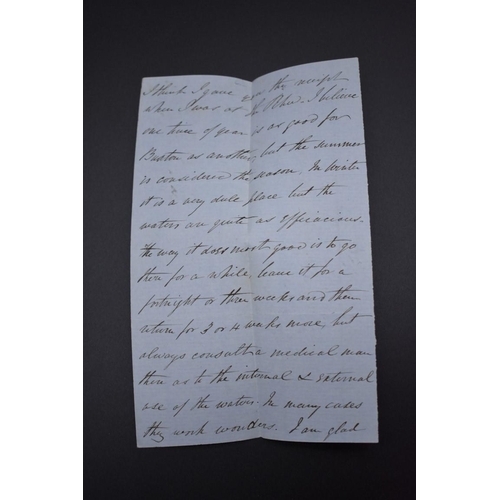 I think I gave you the receipt
when I was at the I believe
one time of year is as good for
Buxton as another, but the summer
is considered the season. In Winter
it is a very dull place but the
waters are quite as efficacious.
the way it does most good is to go
there for a while, leave it for a
fortnight or three weeks and then
return for 3 or 4 weeks more, but
always consult a medical man
there as to the internal & external
use of the waters. In many cases
they work wonders. I am glad